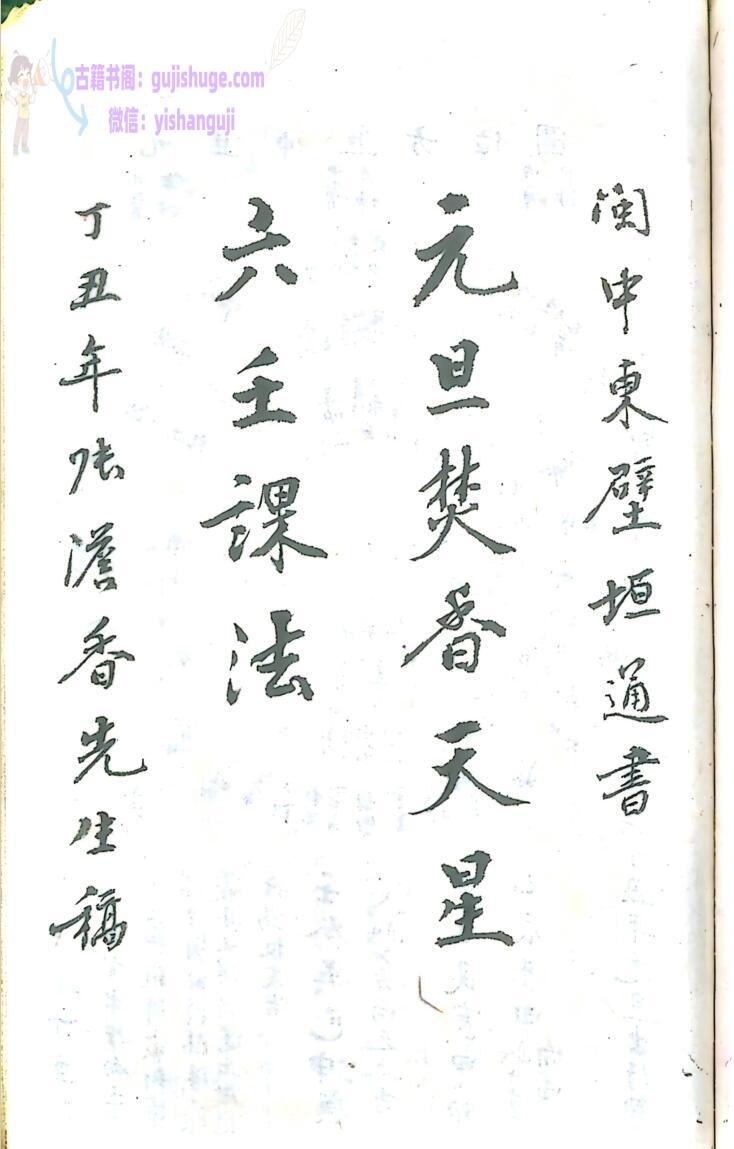 古籍书阁：gujishuge.com
微信：yishanguji
闽中東壁垣通書
元旦焚香天星
六壬課法
丁丑年张澹香先生稿